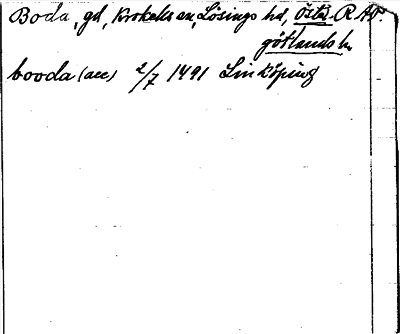 Boda, gd, Krokeks sn, Lösings hd, Öster- RAP.
götlands l.
booda (acc) 2/7 1491 Linköping